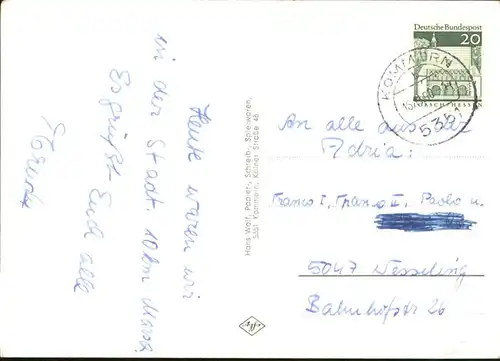 Heute waren wir
in der Stadt. 10 km Marsch
Es grüßt Euch alle
Hans Wolf, Papier-, Schreib-, Spielwaren,
5351 Kommern, Kölner Straße 48
Agfa
Deutsche Bundespost
20
LORSCH/HESSEN
KOMMERN
5351
An alle aus der
Adria:
Franco I, Franco II, Paolo u.
5047 Wesseling
Bahnhofstr 26